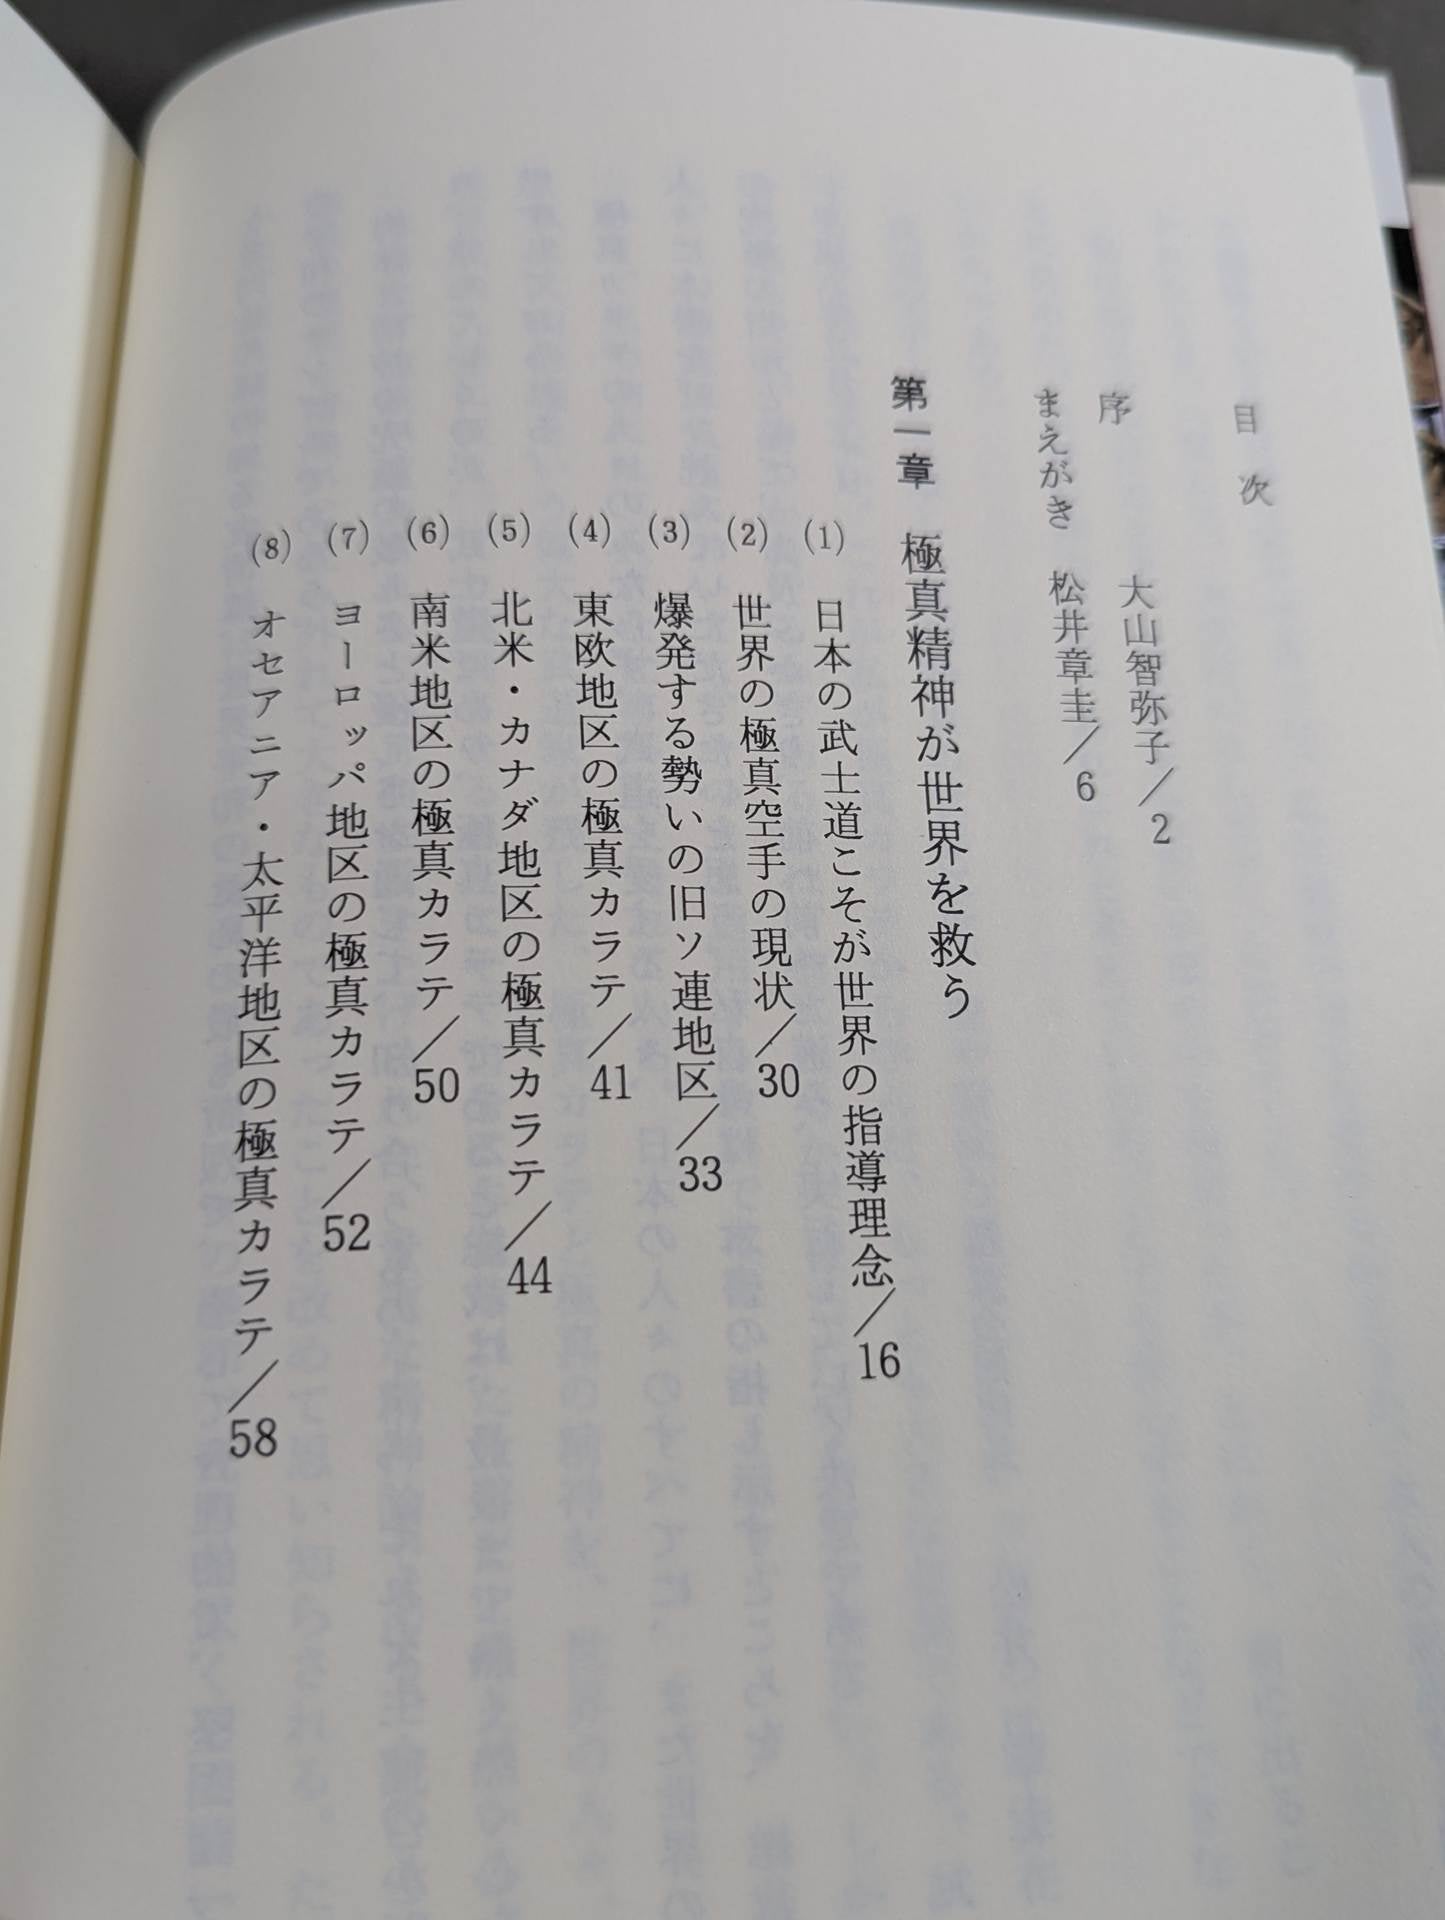 目次
序　大山智弥子／2
まえがき　松井章圭／6
第一章　極真精神が世界を救う
(1)　日本の武士道こそが世界の指導理念／16
(2)　世界の極真空手の現状／30
(3)　爆発する勢いの旧ソ連地区／33
(4)　東欧地区の極真カラテ／41
(5)　北米・カナダ地区の極真カラテ／44
(6)　南米地区の極真カラテ／50
(7)　ヨーロッパ地区の極真カラテ／52
(8)　オセアニア・太平洋地区の極真カラテ／58